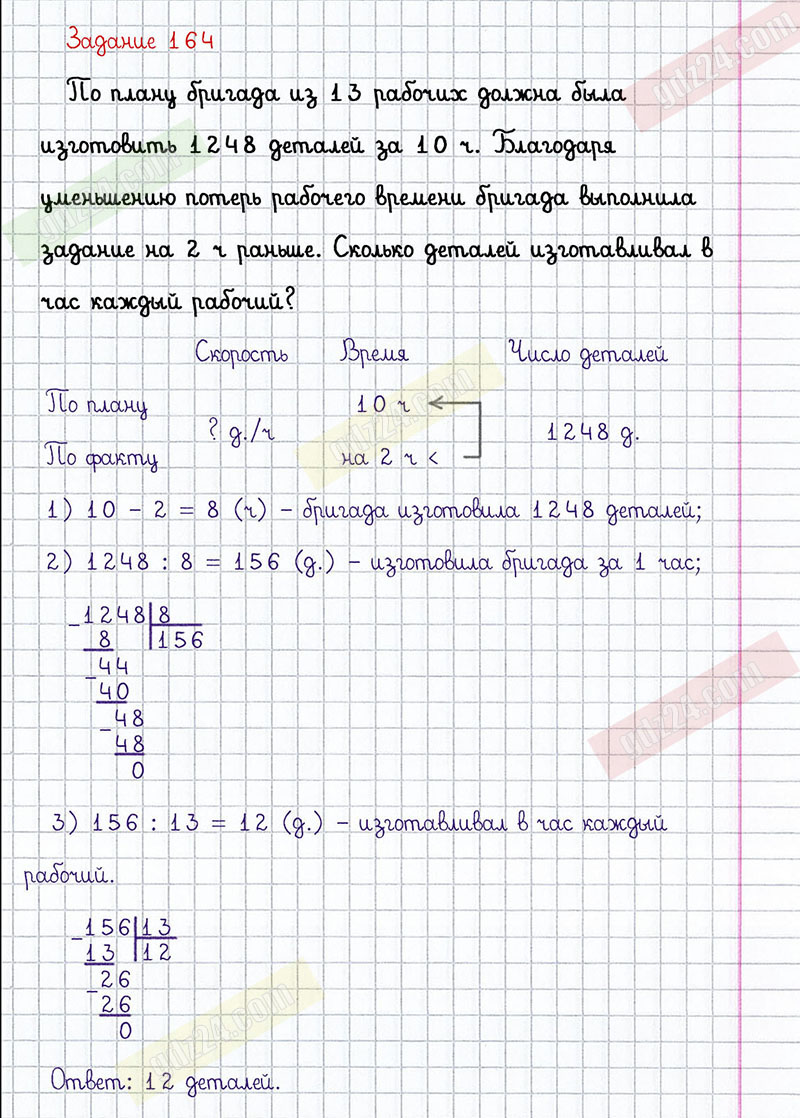 Задание 164
По плану бригада из 13 рабочих должна была
изготовить 1248 деталей за 10 ч. Благодаря
уменьшению потерь рабочего времени бригада выполнила
задание на 2 ч раньше. Сколько деталей изготавливал в
час каждый рабочий?
Скорость Время Число деталей
По плану 10 ч
? д./ч 1248 д.
По факту на 2 ч <
1) 10 - 2 = 8 (ч) - бригада изготовила 1248 деталей;
2) 1248 : 8 = 156 (д.) - изготовила бригада за 1 час;
- 1248 | 8
8 | 156
- 44
40
- 48
48
0
3) 156 : 13 = 12 (д.) - изготавливал в час каждый
рабочий.
- 156 | 13
13 | 12
- 26
26
0
Ответ: 12 деталей.
gdz24.com
gdz24.com
gdz24.com
gdz24.com
gdz24.com